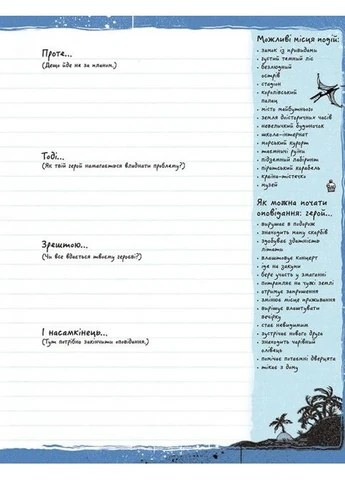 Проте...
(Дещо йде не за планом.)
Тоді...
(Як твій герой намагається владнати проблему?)
Зрештою...
(Чи все вдається твоєму героєві?)
І насамкінець...
(Тут потрібно закінчити оповідання.)
Можливі місця подій:
• замок із привидами
• густий темний ліс
• безлюдний
острів
• стадіон
• королівський
палац
• місто майбутнього
• земля доісторичних часів
• невеличкий будиночок
• школа-інтернат
• морський курорт
• таємничі руїни
• підземний лабіринт
• піратський корабель
• країни-тістечки
• музей
Як можна почати
оповідання: герой...
• вирушає в подорож
• знаходить мапу скарбів
• здобуває здатність
літати
• влаштовує концерт
• іде на закупи
• бере участь у змаганні
• потрапляє на чужі землі
• отримує запрошення
• змінює місце проживання
• вирішує влаштувати
вечірку
• стає невидимим
• зустрічає нового друга
• знаходить чарівний
олівець
• помічає потаємні дверцята
• тікає з дому